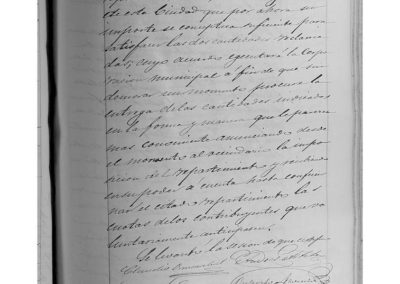 de esta Ciudad que por ahora su
importe se conceptua suficiente para
satisfacer las dos cantidades reclama
das, cuyo acuerdo ejecutará la Corpo
racion municipal a fin de que sin
demorar un momento procure la
entrega de las cantidades indicadas
en la forma y manera que le parezca
mas conveniente anunciandose desde
el momento al vecindario la impo
sicion del repartimiento y recibiendo
en su poder á cuenta hasta confeccio
nar el citado repartimiento las
cuotas de los contribuyentes que vo
luntariamente anticipasen.
Se levantó la sesion de que certifico